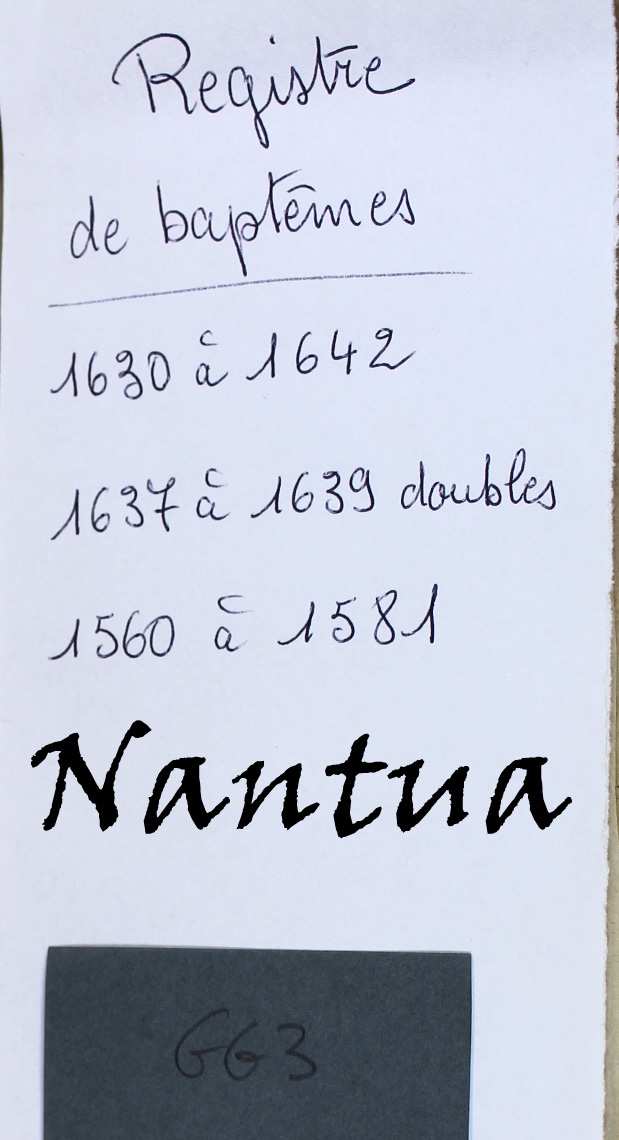 Registre
de baptêmes
1630 à 1642
1637 à 1639 doubles
1560 à 1581
Nantua
GG3